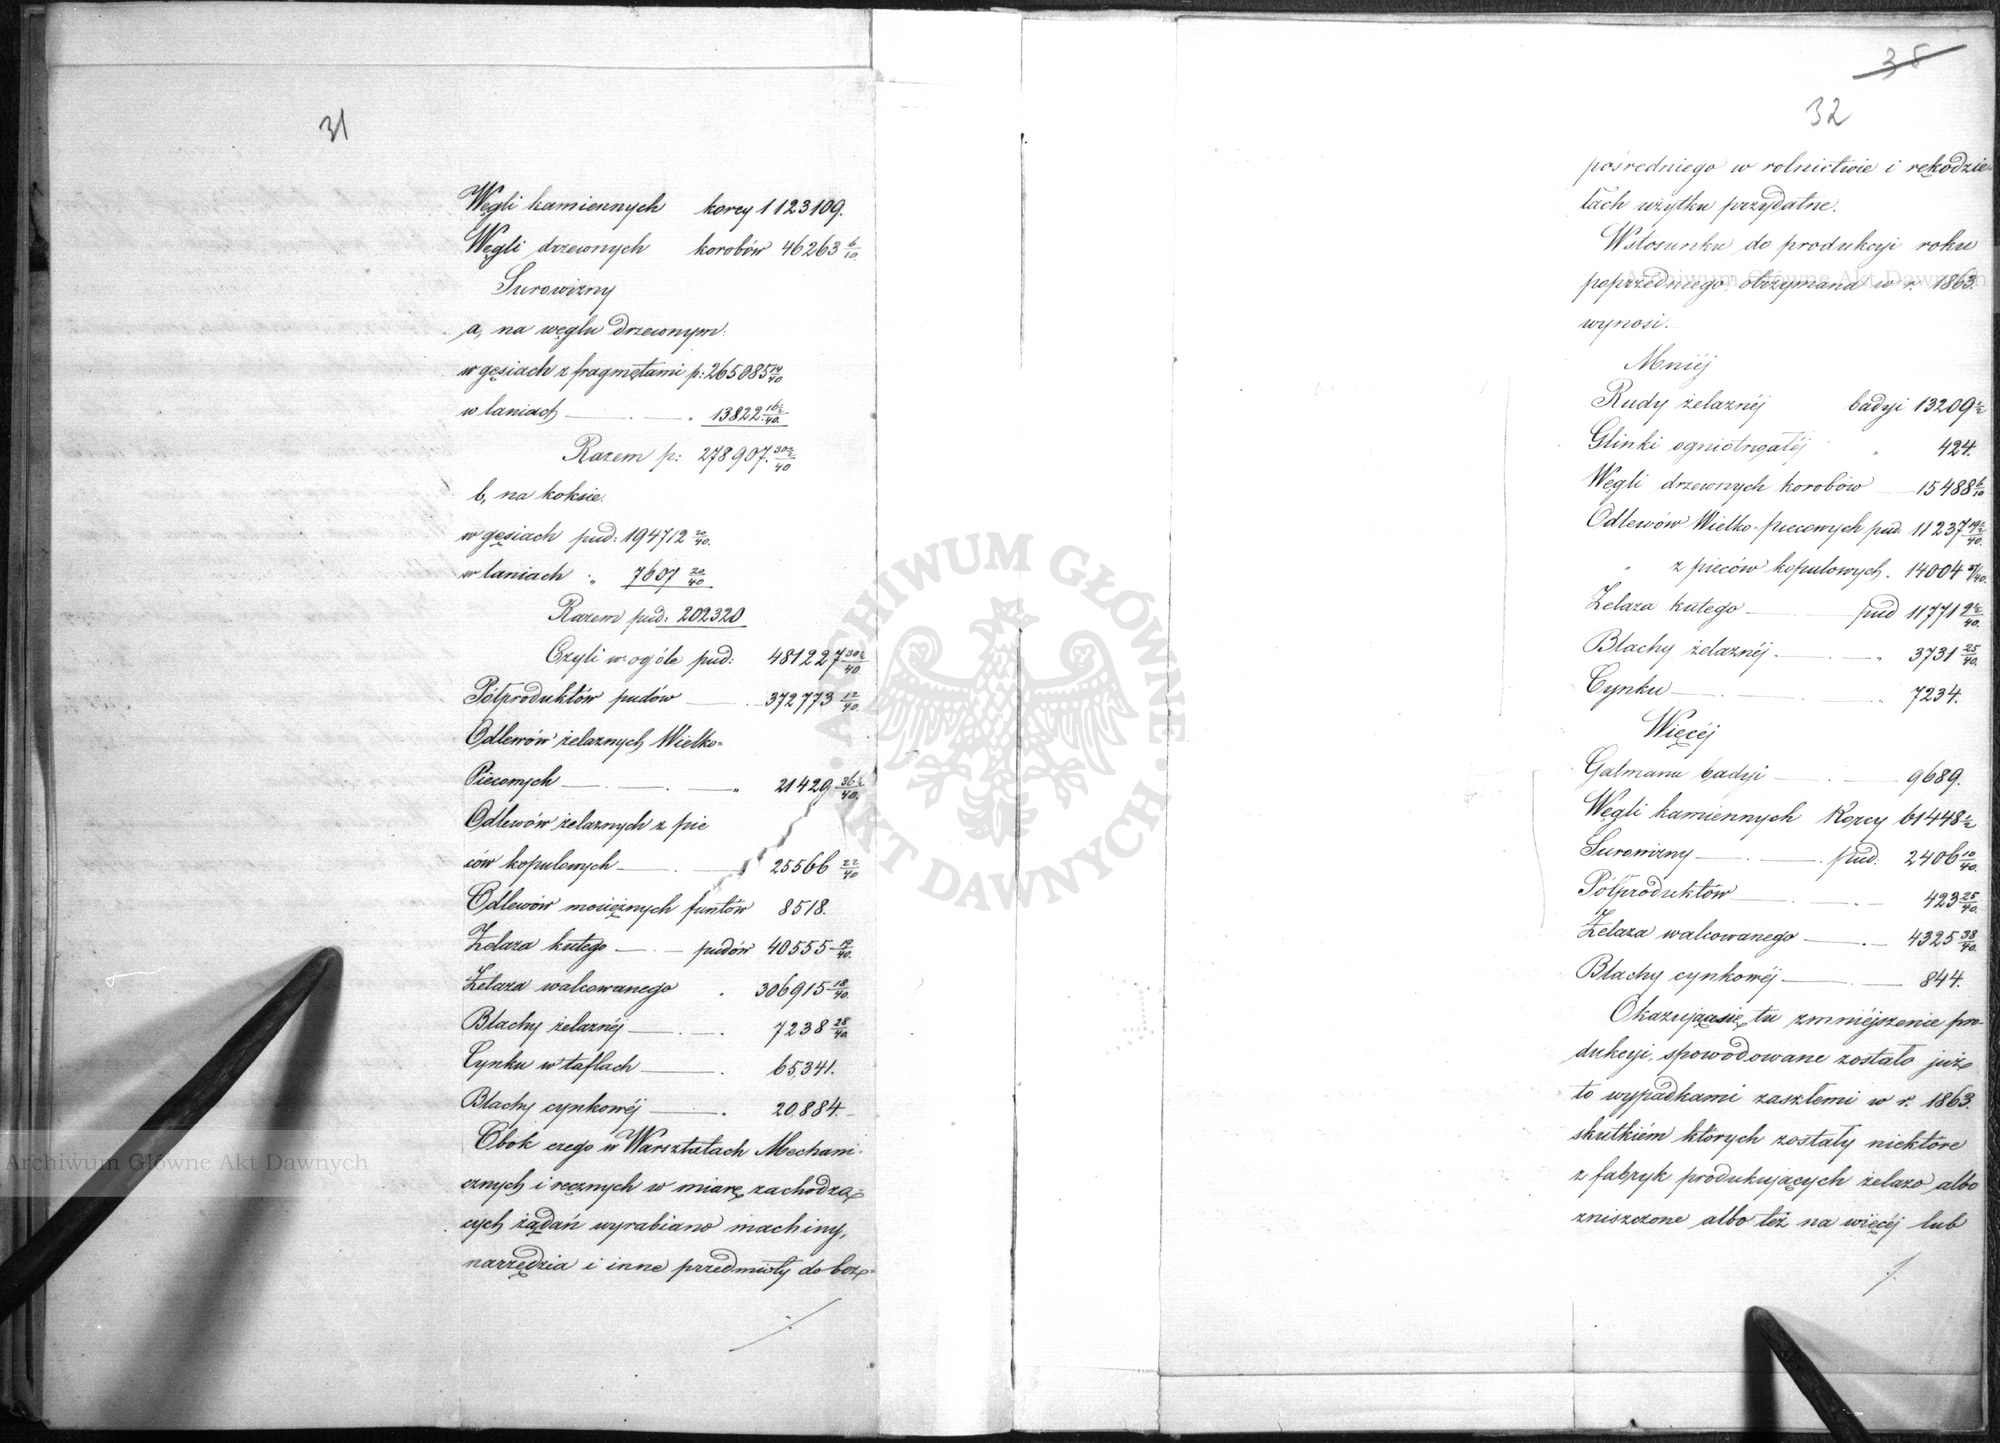 31
Węgli kamiennych korcy 1123109.
Węgli drzewnych korobów 46263 6/10.
Surowizny
a, na węglu drzewnym:
w gęsiach z fragmętami p: 265085 14/40
w laniach " 13822 16½/40.
Razem p: 278907. 30½/40
b, na koksie.
w gęsiach pud: 194712 20/40.
w laniach " 7607 20/40
Razem pud: 202320
Czyli w ogóle pud: 481227 30½/40.
Półproduktów pudów 372773 12/40.
Odlewów żelaznych Wielko-
Piecowych " 21429 36½/40.
Odlewów żelaznych z pie
ców kopulowych 25566 22/40
Odlewów mosiężnych funtów 8518.
Żelaza kutego pudów 40555 17/40.
Żelaza walcowanego 306915 18/40.
Blachy żelaznéj 7238 28/40.
Cynku w taflach 65,341.
Blachy cynkowéj 20,884.
Obok czego w Warsztatach Mechani-
cznych i ręcznych w miarę zachodzą-
cych żądań wyrabiano machiny,
narzędzia i inne przedmioty do bez-
/.
35
32
pośredniego w rolnictwie i rękodzie-
łach użytku przydatne.
W stosunku do produkcyi roku
poprzedniego, otrzymana w r. 1863.
wynosi.
Mniéj
Rudy żelaznéj badyi 13209 ½
Glinki ogniotrwałéj " 424.
Węgli drzewnych korobów 15488 6/10
Odlewów Wielko-piecowych pud. 11237 19½/40.
" z pieców kopulowych. 14004 /40.
Żelaza kutego pud 11771 9½/40.
Blachy żelaznéj " 3731 25/40.
Cynku " 7234.
Więcéj
Galmanu badyi 9689.
Węgli kamiennych Korcy 61448 ½
Surowizny pud: 2406 10/40.
Półproduktów 423 25/40.
Żelaza walcowanego 4325 38/40.
Blachy cynkowéj 844.
Okazujące się tu zmniéjszenie pro-
dukcyi, spowodowane zostało już
to wypadkami zaszłemi w r. 1863.
skutkiém których zostały niektóre
z fabryk produkujących żelazo albo
zniszczone albo też na więcéj lub
/.
Archiwum Główne Akt Dawnych
Archiwum Główne Akt Dawnych
ARCHIWUM GŁÓWNE
AKT DAWNYCH